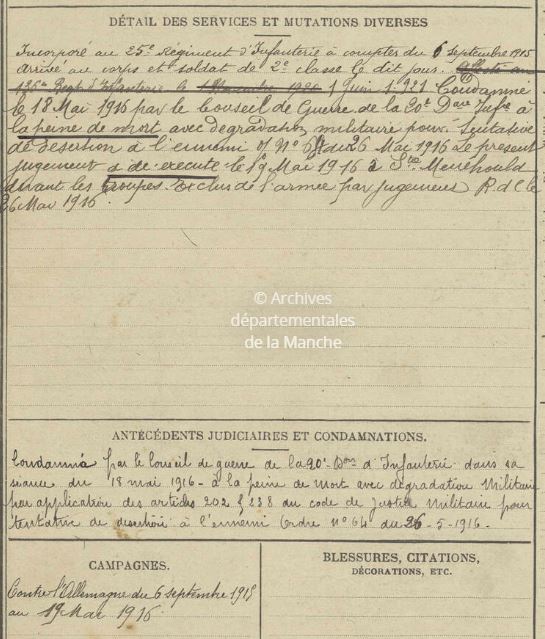 DÉTAIL DES SERVICES ET MUTATIONS DIVERSES
Incorporé au 25e Régiment d'Infanterie à compter du 6 septembre 1915
Arrivé au corps et soldat de 2e classe le dit jour.
136e Regt d'Infanterie le 1 Juin 1921 Condamné
le 18 Mai 1916 par le Conseil de Guerre de la 20e Don Infie à
la peine de mort avec dégradation militaire pour tentative
de desertion à l'ennemi O/ No 64 du 26 Mai 1916 Le présent
jugement a été exécuté le 19 Mai 1916 à Ste Menehould
devant les troupes. Exclus de l'armée par jugement R d C le
26 Mai 1916.
© Archives
départementales
de la Manche
ANTÉCÉDENTS JUDICIAIRES ET CONDAMNATIONS.
Condamné par le Conseil de guerre de la 20e Don d'Infanterie dans sa
séance du 18 mai 1916 - à la peine de mort avec dégradation Militaire
par application des articles 202 & 238 du code de Justice Militaire pour
"tentative de desertion à l'ennemi Ordre No 64 du 26-5-1916.-
CAMPAGNES.
Contre l'Allemagne du 6 septembre 1915
au 19 Mai 1916.
BLESSURES, CITATIONS,
DÉCORATIONS, ETC.